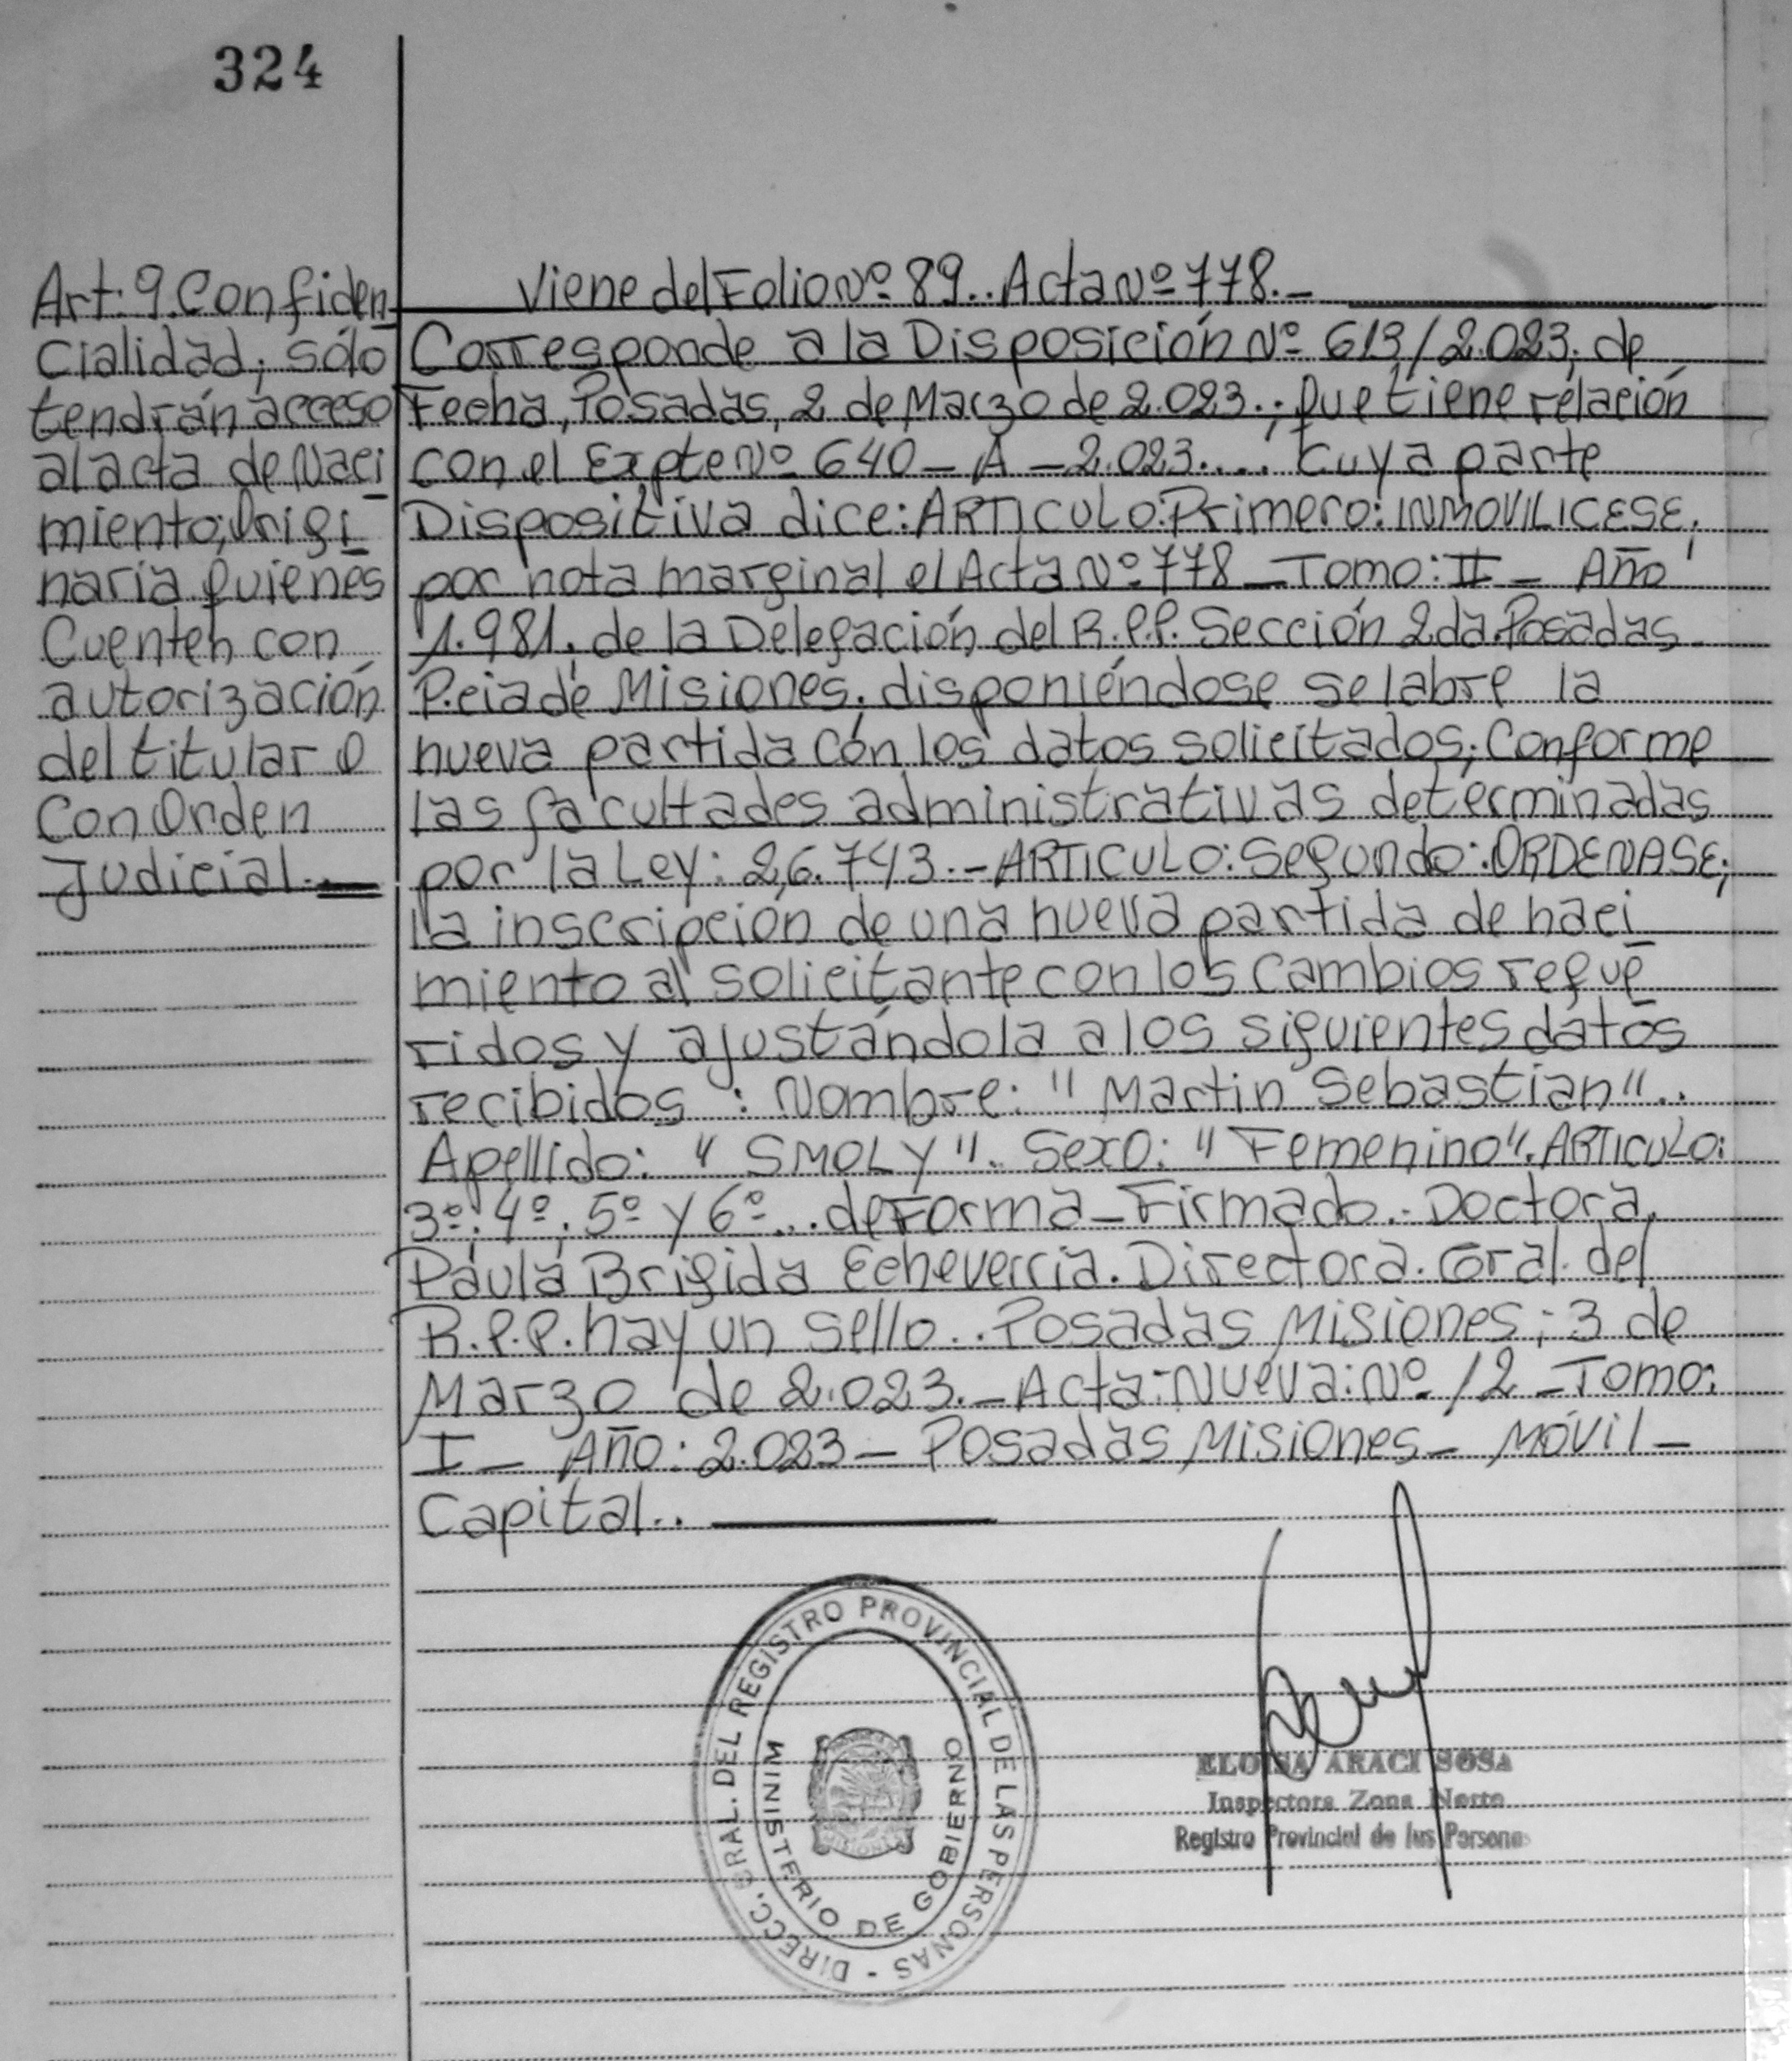 324
Art: 9. Confiden
cialidad; sólo
tendrán acceso
al acta de Naci
miento; Origi
naria quienes
Cuenten con
autorización
del titular O
Con Orden
Judicial.
Viene del Folio Nº 89.. Acta Nº 778.-
Corresponde a la Disposición Nº 613/2.023; de
Fecha, Posadas, 2 de Marzo de 2.023.; que tiene relación
con el Expte Nº 640 - A - 2.023.... Cuya parte
Dispositiva dice: ARTICULO: Primero: INMOVILICESE;
por nota marginal el Acta Nº 778 - Tomo: II - Año
1.981; de la Delegación del R.P.P. Sección 2da. Posadas
P.cia de Misiones; disponiéndose se labre la
nueva partida con los datos solicitados; Conforme
las facultades administrativas determinadas
por la Ley: 26.743.- ARTICULO: Segundo: ORDENASE;
la inscripción de una nueva partida de naci
miento al solicitante con los cambios reque
ridos y ajustándola a los siguientes datos
recibidos: Nombre: "Martin Sebastian"..
Apellido: "SMOLY". Sexo: "Femenino". ARTICULO:
3º; 4º; 5º y 6º... de Forma - Firmado.. Doctora
Paula Brigida Echeverria. Directora. Gral. del
R.P.P. hay un sello.. Posadas Misiones; 3 de
Marzo de 2.023.- Acta: Nueva: Nº 12 - Tomo:
I - Año: 2.023 - Posadas Misiones - Móvil -
Capital..
DIRECC. GRAL. DEL REGISTRO PROVINCIAL DE LAS PERSONAS -
MINISTERIO DE GOBIERNO
MISIONES
ELOISA ARACI SOSA
Inspectora Zona Norte
Registro Provincial de las Personas